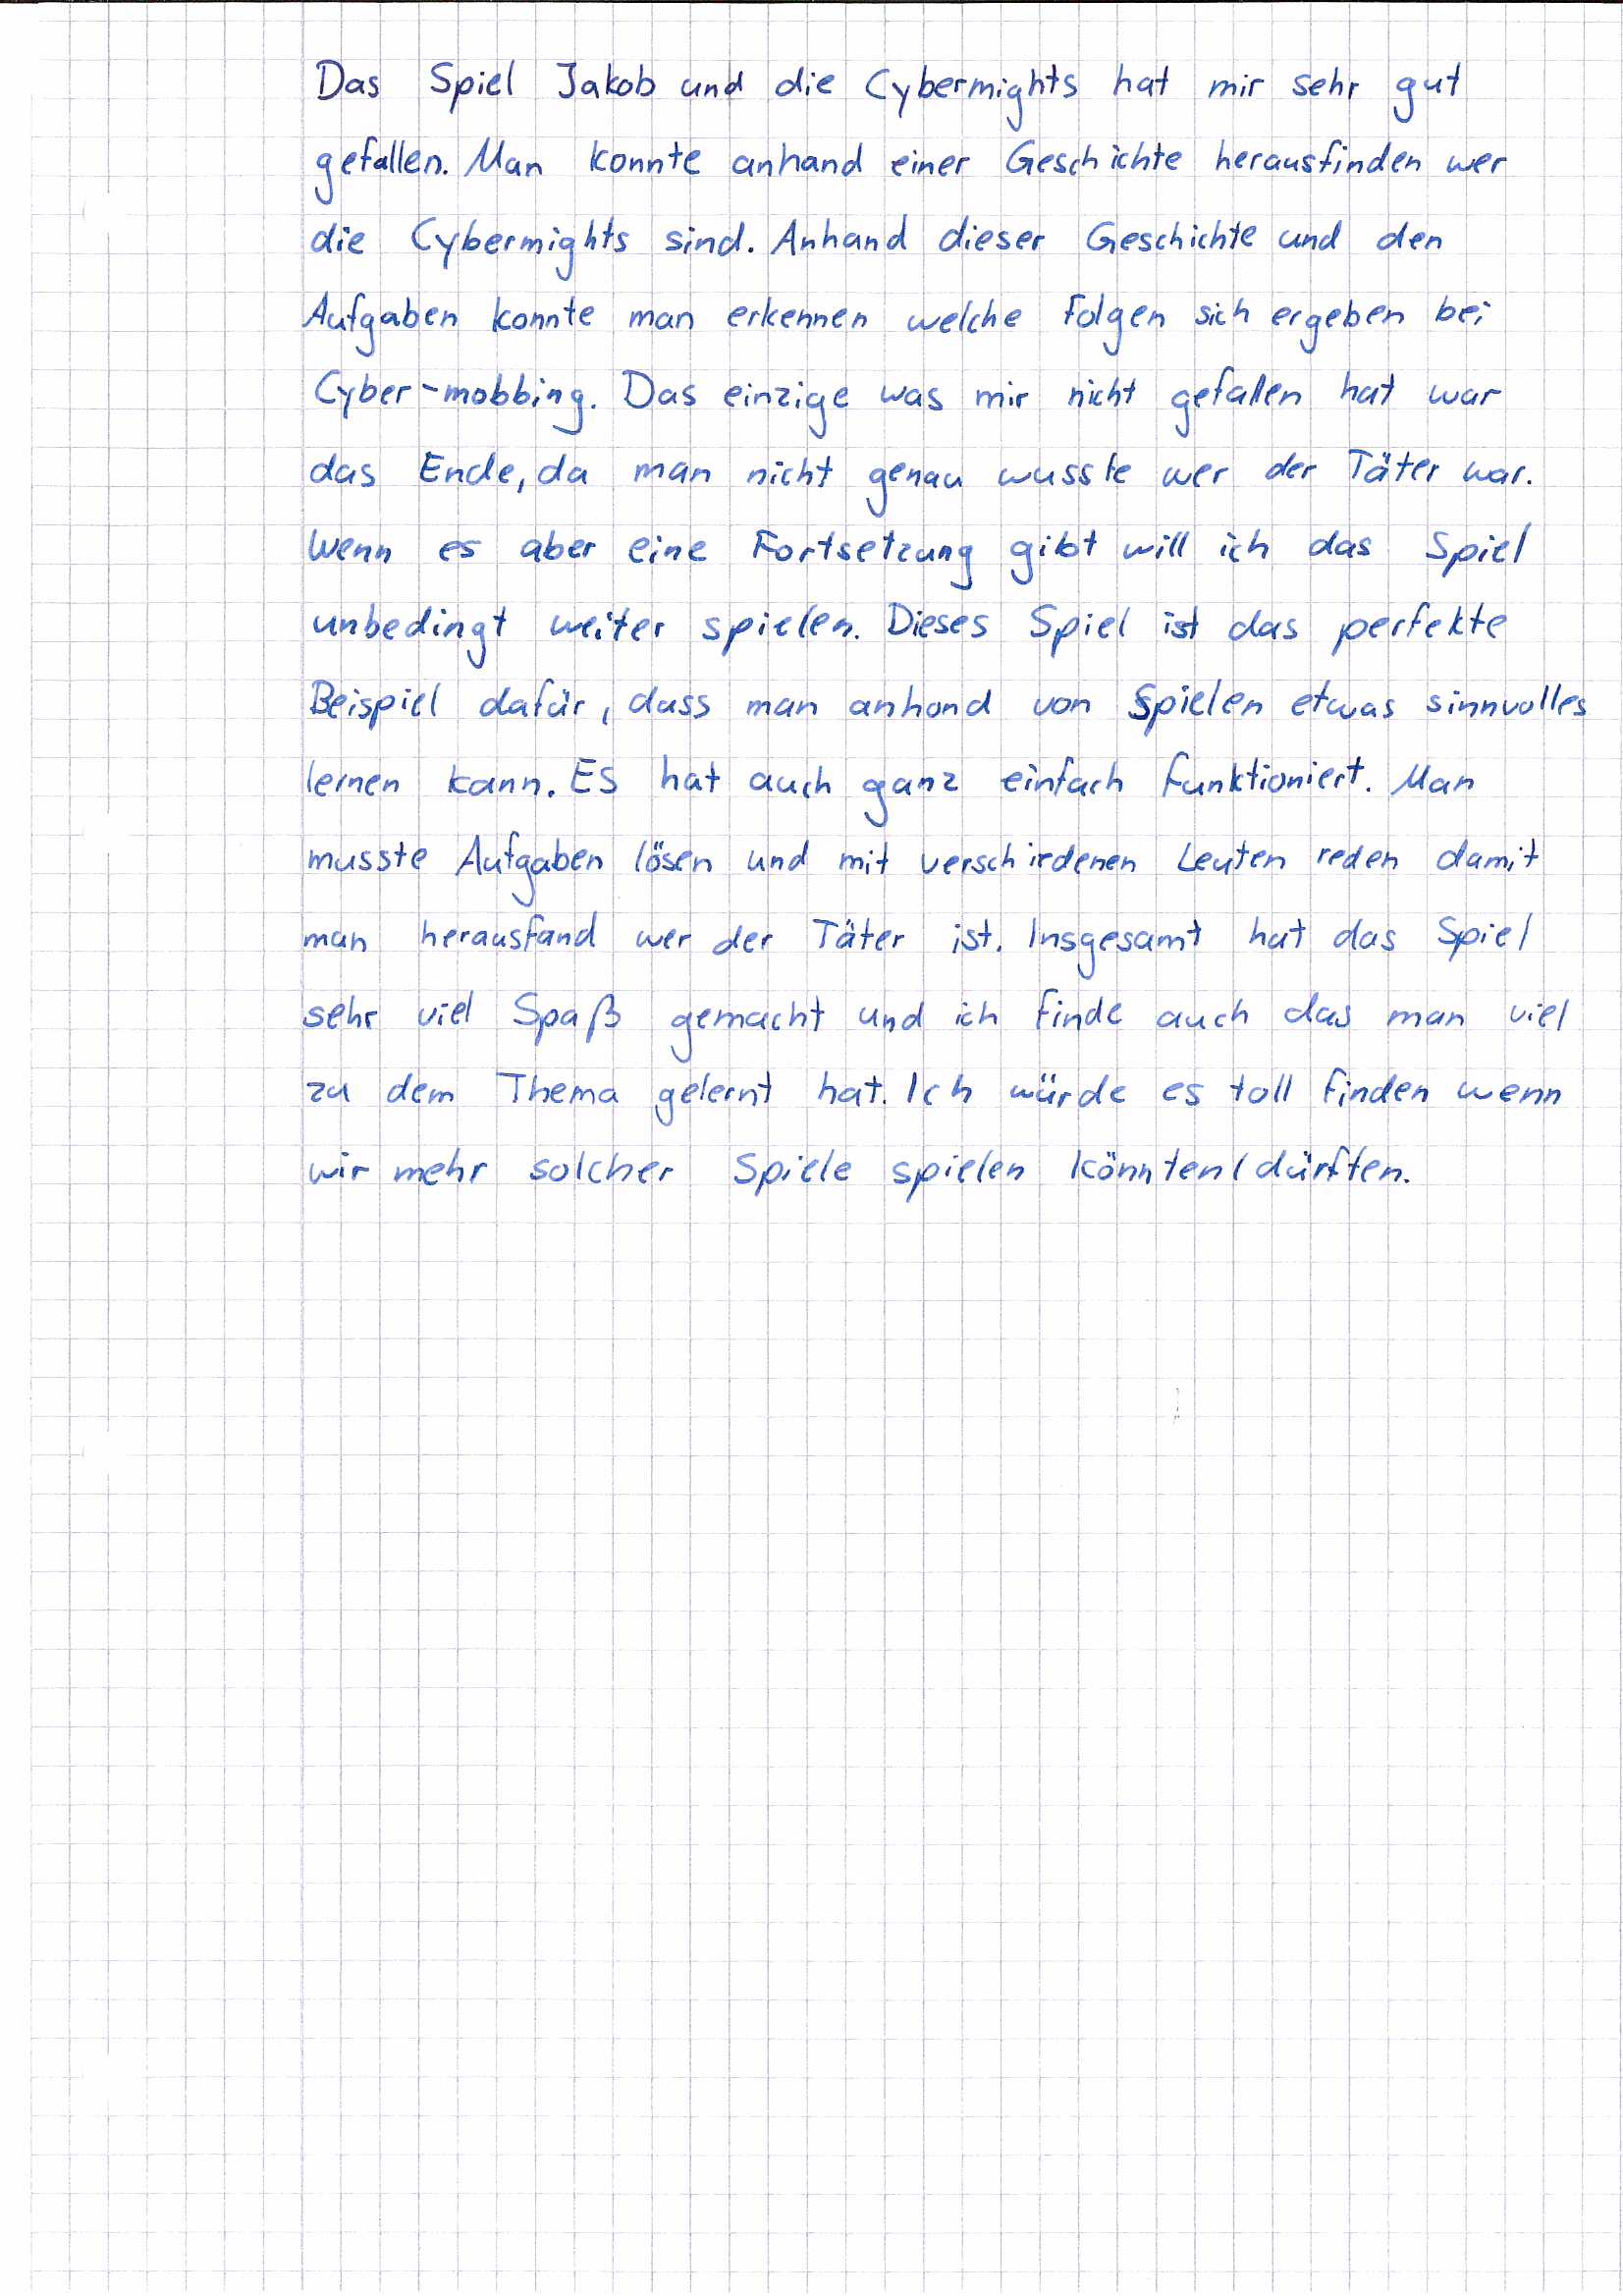 Das Spiel Jakob und die Cybermights hat mir sehr gut
gefallen. Man konnte anhand einer Geschichte herausfinden wer
die Cybermights sind. Anhand dieser Geschichte und den
Aufgaben konnte man erkennen welche Folgen sich ergeben bei
Cyber-mobbing. Das einzige was mir nicht gefallen hat war
das Ende, da man nicht genau wusste wer der Täter war.
Wenn es aber eine Fortsetzung gibt will ich das Spiel
unbedingt weiter spielen. Dieses Spiel ist das perfekte
Beispiel dafür, dass man anhand von Spielen etwas sinnvolles
lernen kann. ES hat auch ganz einfach funktioniert. Man
musste Aufgaben lösen und mit verschiedenen Leuten reden damit
man herausfand wer der Täter ist. Insgesamt hat das Spiel
sehr viel Spaß gemacht und ich finde auch das man viel
zu dem Thema gelernt hat. Ich würde es toll finden wenn
wir mehr solcher Spiele spielen könnten/dürften.